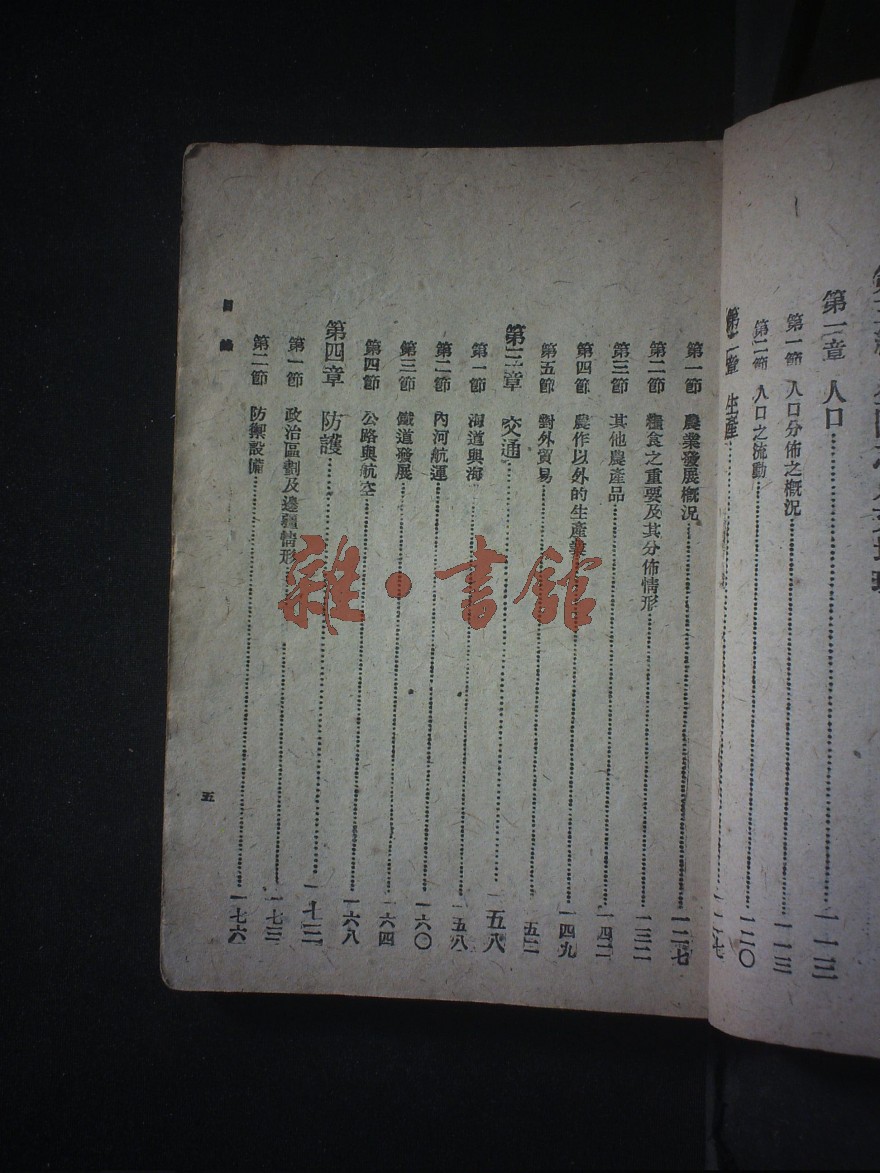 第一章 人口……一一三
第一節 人口分佈之概況……一一三
第二節 人口之流動……一二〇
第二章 生產……一二七
第一節 農業發展概況……一二七
第二節 糧食之重要及其分佈情形……一三二
第三節 其他農產品……一四二
第四節 農作以外的生產業……一四九
第五節 對外貿易……五二
第三章 交通……一五八
第一節 海道與海……一五八
第二節 內河航運……一六〇
第三節 鐵道發展……一六四
第四節 公路與航空……一六八
第四章 防護……一七三
第一節 政治區劃及邊疆情形……一七三
第二節 防禦設備……一七六
目錄
五
雜·書館